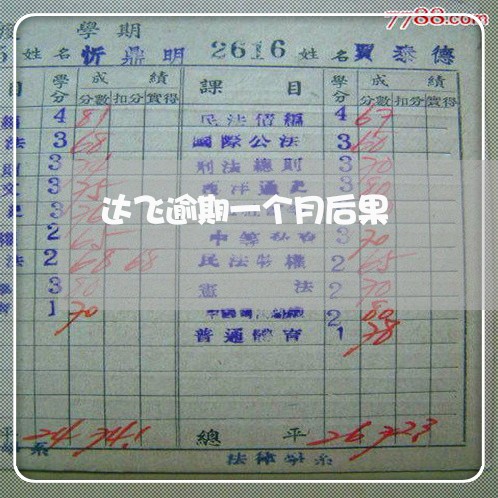 7788.com
學期
姓名 忻鼎明 2616 姓名 賈泰德
目 學分 成績 課目 學分 成績
分數 扣分 實得 分數 扣分 實得
4 81 民法債編 4 67
法 3 68 國際公法 3 60
3 刑法總則 3 70
文 3 75 西洋通史 3 80
达飞逾期一个月后果
2 65 3 70
法 2 68 68 民法物權 2 65
3 80 憲法 2 70
1 70 2 80
普通體育 1 78
平 24 74.1 總平 26 72.3
系 法律學系